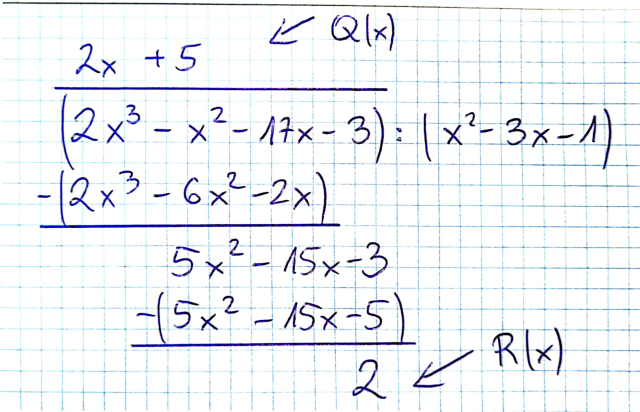 Q(x)
2x + 5
(2x³ - x² - 17x - 3) : (x² - 3x - 1)
-(2x³ - 6x² - 2x)
5x² - 15x - 3
-(5x² - 15x - 5)
2
R(x)